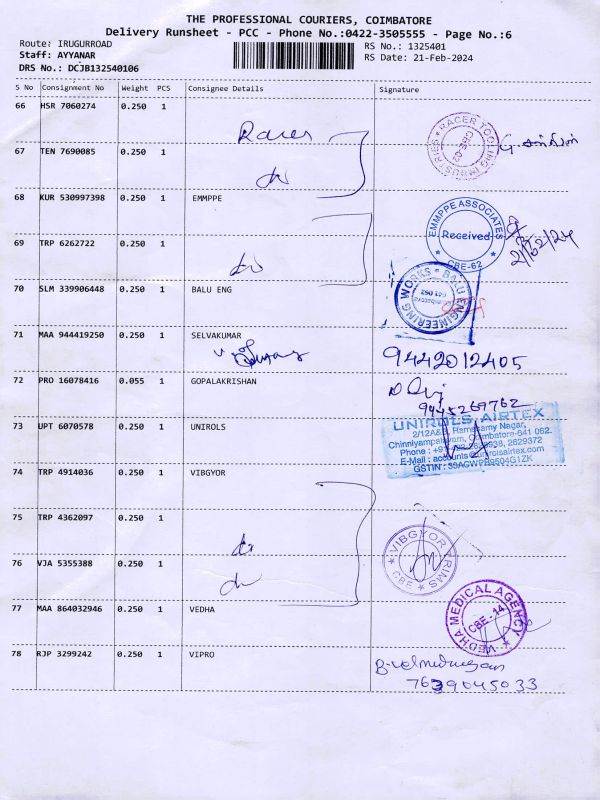 THE PROFESSIONAL COURIERS, COIMBATORE
Delivery Runsheet - PCC - Phone No.:0422-3505555 - Page No.:6
Route: IRUGURROAD
RS No.: 1325401
Staff: AYYANAR
RS Date: 21-Feb-2024
DRS No.: DCJB132540106
S No Consignment No Weight PCS Consignee Details Signature
66 HSR 7060274 0.250 1
Racer
RACER TOOLING INDUSTRIES
67 TEN 7690085 0.250 1
68 KUR 530997398 0.250 1 EMMPPE
EMMPPE ASSOCIATES
Received
CBE-62
21/02/24
69 TRP 6262722 0.250 1
70 SLM 339906448 0.250 1 BALU ENG
BALU ENGINEERING WORKS
641 062
71 MAA 944419250 0.250 1 SELVAKUMAR
9442012405
72 PRO 16078416 0.055 1 GOPALAKRISHAN
9445269762
73 UPT 6070578 0.250 1 UNIROLS
UNIROLS AIRTEX
2/12A&B, Ramasamy Nagar,
Chinniyampalayam, Coimbatore-641 062.
2629372
E-Mail : accounts@unirolsairtex.com
74 TRP 4914036 0.250 1 VIBGYOR
75 TRP 4362097 0.250 1
VIBGYOR TRIMS
CBE
76 VJA 5355388 0.250 1
77 MAA 864032946 0.250 1 VEDHA
VEDHA MEDICAL AGENCY
CBE-14
78 RJP 3299242 0.250 1 VIPRO
7639045033